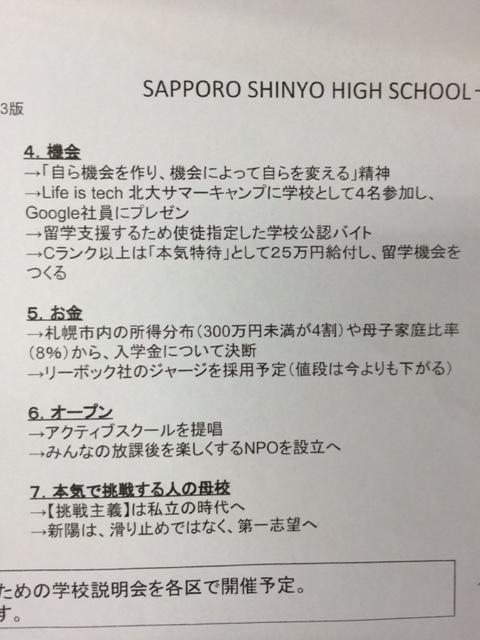 SAPPORO SHINYO HIGH SCHOOL
3版
4. 機会
→「自ら機会を作り、機会によって自らを変える」精神
→Life is tech 北大サマーキャンプに学校として4名参加し、
Google社員にプレゼン
→留学支援するため使徒指定した学校公認バイト
→Cランク以上は「本気特待」として25万円給付し、留学機会を
つくる
5. お金
→札幌市内の所得分布（300万円未満が4割）や母子家庭比率
（8%）から、入学金について決断
→リーボック社のジャージを採用予定（値段は今よりも下がる）
6. オープン
→アクティブスクールを提唱
→みんなの放課後を楽しくするNPOを設立へ
7. 本気で挑戦する人の母校
→【挑戦主義】は私立の時代へ
→新陽は、滑り止めではなく、第一志望へ
ための学校説明会を各区で開催予定。
す。